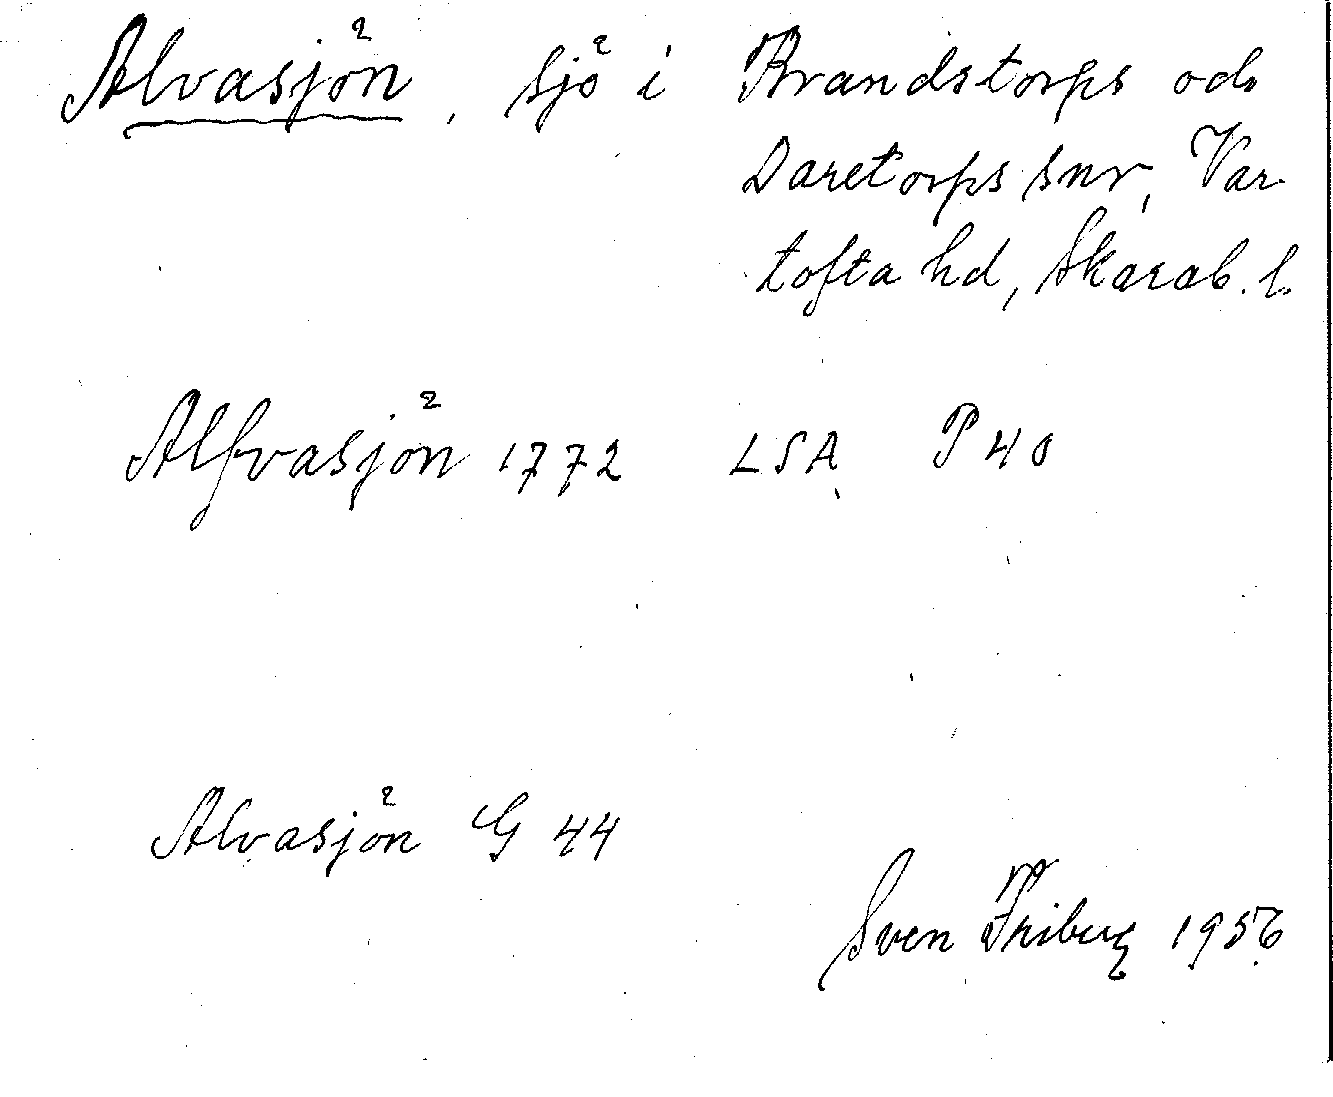 Alvasjön, sjö i Brandstorps och
Daretorps snr, Var-
tofta hd, Skarab. l.
Alfvasjön 1772 LSA P 40
Alvasjön G 44
Sven Friberg 1956